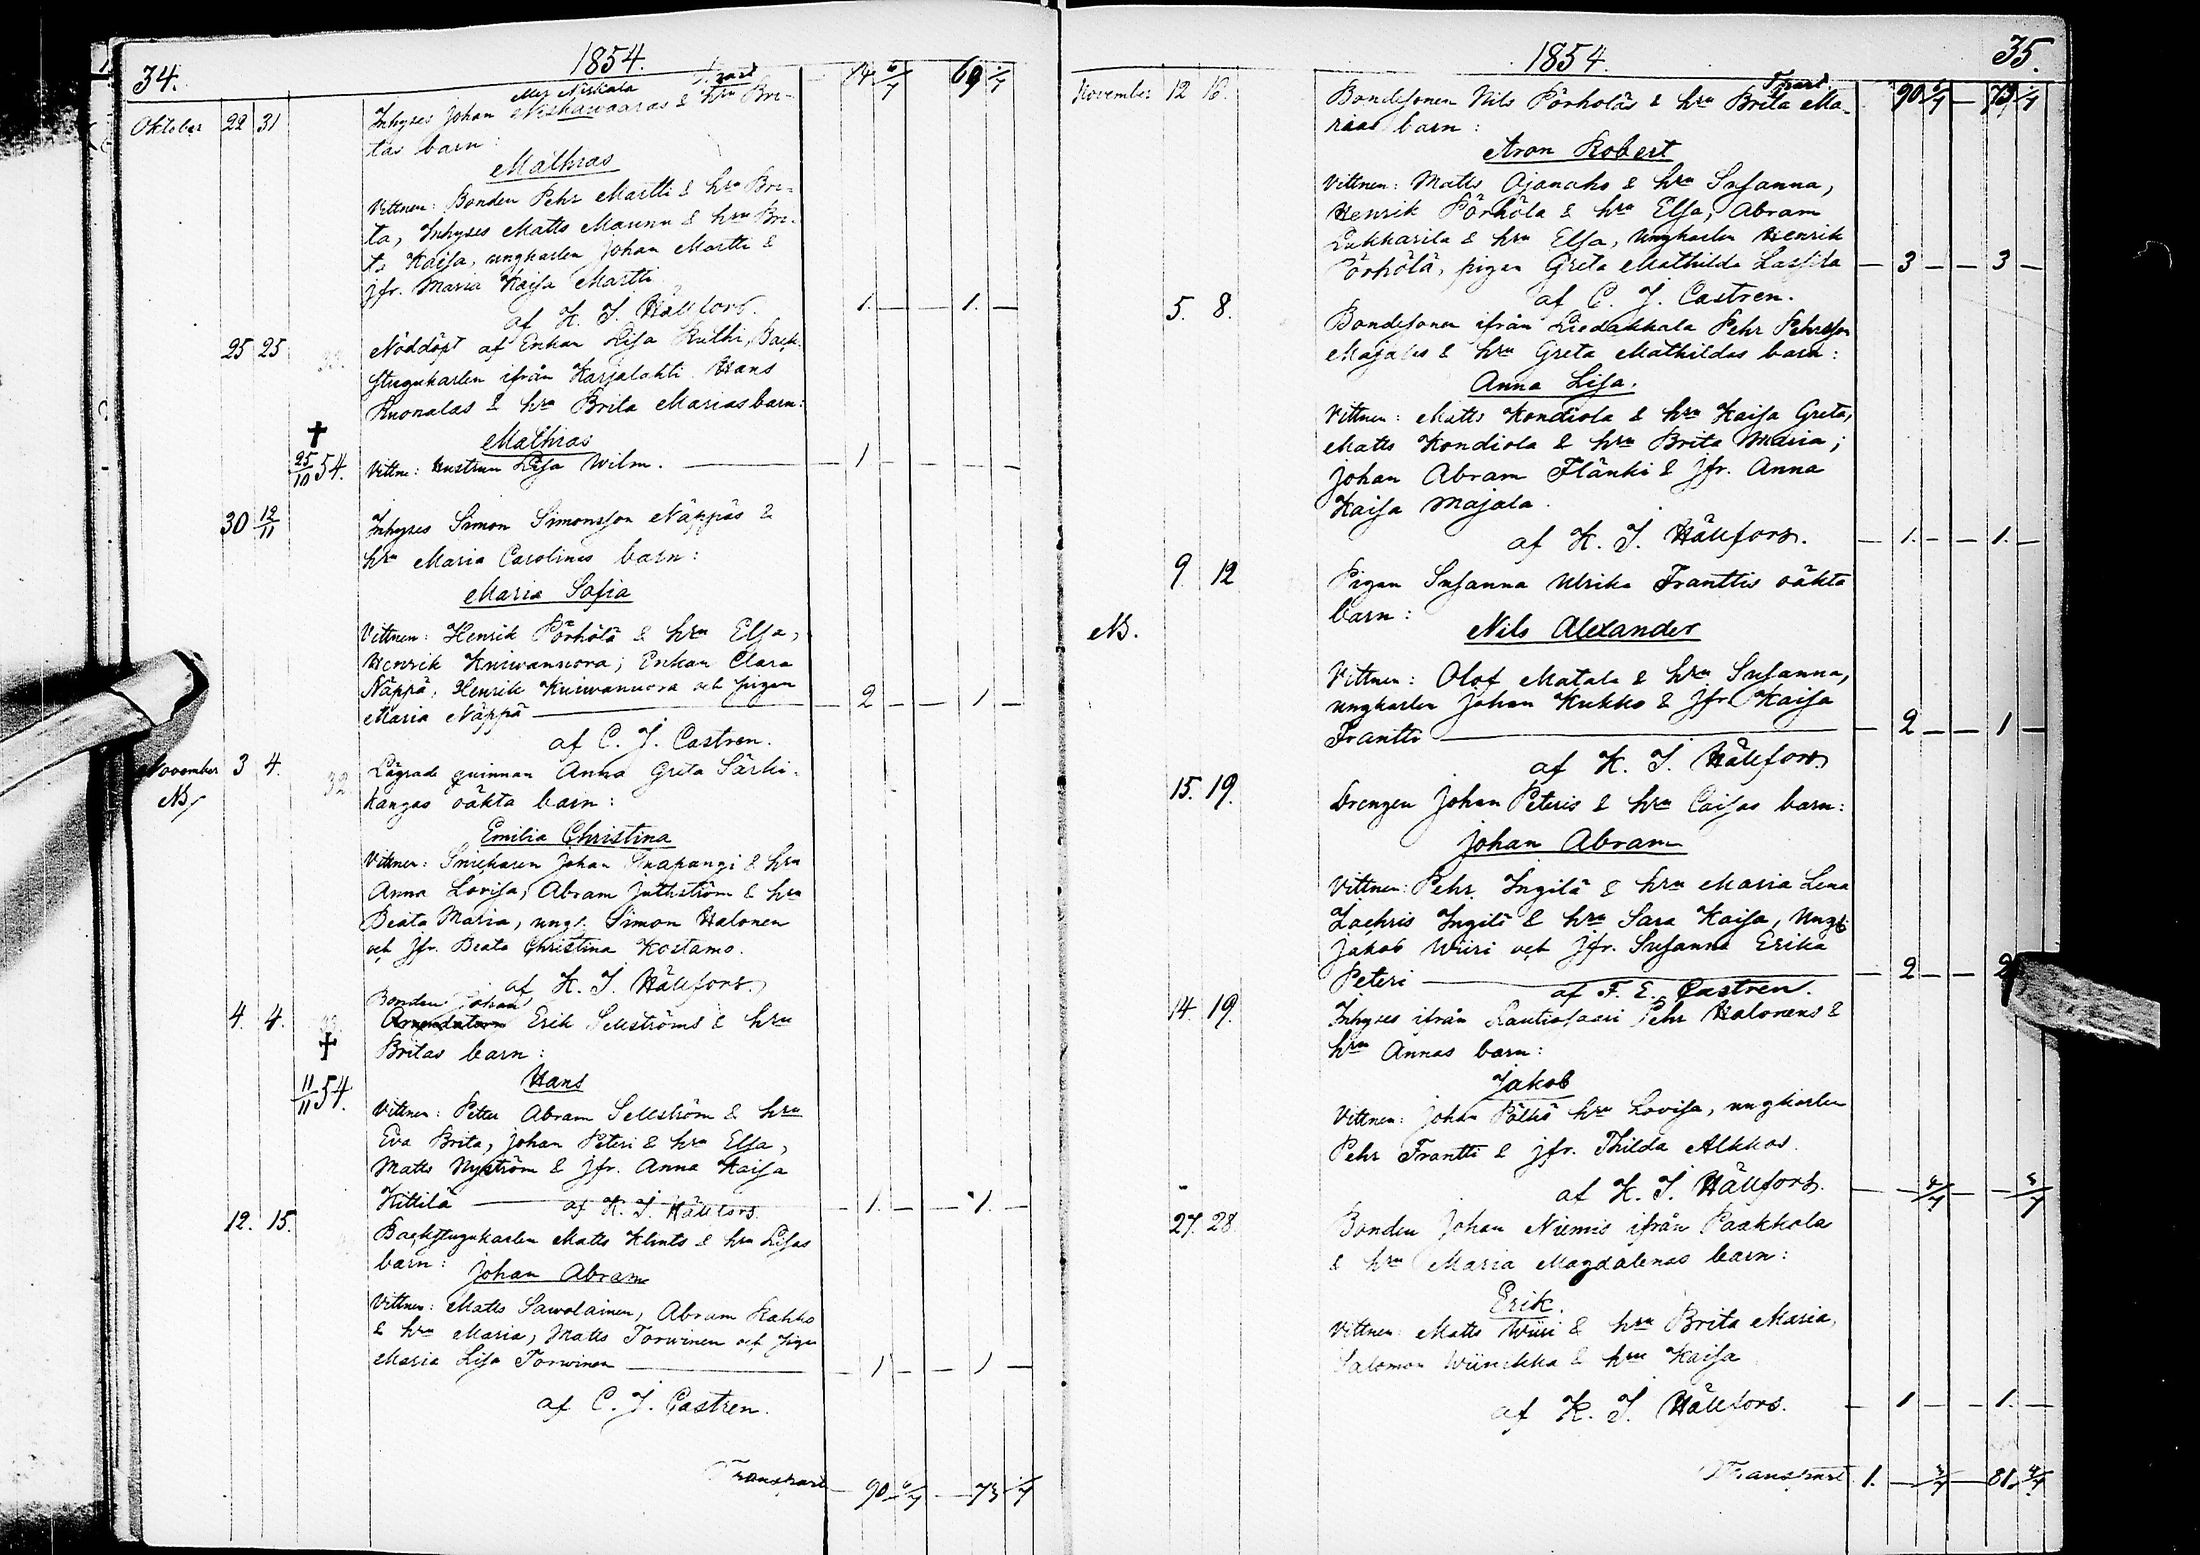 34.
1854.
Trart
alls Niskala
14 6/7 69 1/7
Oktober 22 31
Inhyses Johan Niskawaaras & hru Bri-
tas barn:
Mathias
Vittnen: Bonden Pehr Martti & hru Bri-
ta, Inhyses Matts Maunu & hru Bri-
ta Kaisa, ungkarlen Johan Martti &
jfr. Maria Kaisa Martti
af K. J. Hällfors.
1. 1.
25 25
Nöddöpt af Enkan Lisa Kulhi, Back-
stugukarlen ifrån Karjalahti Hans
Ruonalas & hru Brita Marias barn:
Mathias
✝
25/10 54.
Vittne: Hustrun Lisa Wilm.
1
30 12/11
Inhyses Simon Simonsson Näppäs &
hru Maria Carolinas barn:
Maria Sofia
Vittnen: Henrik Pörhölä & hru Elsa,
Henrik Kuiwanuora; Enkan Clara
Näppä, Henrik Kuiwanuora och pigan
Maria Näppä
2 1
af C. J. Castren.
November 3 4.
NB
32
Lägrade quinnan Anna Greta Särki-
kangas oäkta barn:
Emilia Christina
Vittnen: Snickaren Johan Snapangi & hru
Anna Lovisa, Abram Juthström & hru
Beata Maria, ungk. Simon Halonen
och jfr. Beata Christina Kostamo.
af K. J. Hällfors.
4. 4.
Bonden Johan
Erik Sellströms & hru
Britas barn:
✝
Hans
11/11 54.
Vittnen: Petter Abram Sellström & hru
Eva Brita, Johan Peteri & hru Elsa,
Matts Nyström & jfr. Anna Kaisa
Kittilä
af K. J. Hällfors.
1. 1.
12. 15.
Backstugukarlen Matts Klints & hru Lisas
barn: Johan Abram
Vittnen: Matts Sawolainen, Abram Kahko
& hru Maria, Matts Torwinen och pigan
Maria Lisa Torwinen
1 1
af C. J. Castren.
Transport 90 6/7 73 1/7
1854.
35.
Trart
90 6/7 73 1/7
November 12 18.
Bondesonen Nils Pörhöläs & hru Brita Ma-
rias barn:
Aron Robert
Vittnen: Matts Ojanaho & hru Susanna,
Henrik Pörhölä & hru Elsa, Abram
Lukkarila & hru Elsa, Ungkarlen Henrik
Pörhölä, pigan Greta Mathilda Lassila
3 3
af C. J. Castren.
5. 8.
Bondesonen ifrån Liedakkala Pehr Pehrsson
Majalas & hru Greta Mathildas barn:
Anna Lisa.
Vittnen: Matts Kondiola & hru Kaisa Greta,
Matts Kondiola & hru Brita Maria;
Johan Abram Flänki & jfr. Anna
Kaisa Majala.
af K. J. Hällfors.
1. 1.
9 12
Pigan Susanna Ulrika Franttis oäkta
barn:
NB.
Nils Alexander
Vittnen: Olof Matala & hru Susanna,
ungkarlen Johan Kukko & Jfr Kaisa
Frantti
2 1
af K. J. Hällfors
15. 19.
Drengen Johan Peteris & hru Caisas barn:
Johan Abram
Vittnen: Pehr Ingilä & hru Maria Lena
Zachris Ingilä & hru Sara Kaisa, Ungk
Jakob Wiiri och Jfr. Susanna Erika
Peteri
2 2
af F. E. Castren.
14. 19.
Inhyses ifrån Lautiosaari Pehr Halonens &
hru Annas barn:
Jakob
Vittnen: Johan Pälkö hru Lovisa, ungkarlen
Pehr Frantti & jfr. Thilda Alkkos.
af K. J. Hällfors.
27. 28
Bonden Johan Niemis ifrån Paakkola
& hru Maria Magdalenas barn:
Erik.
Vittnen: Matts Wiiri & hru Brita Maria,
Salomon Wiinikka & hru Kaisa
af K. J. Hällfors.
1 1.
Transport 1. 3/7 81 4/7